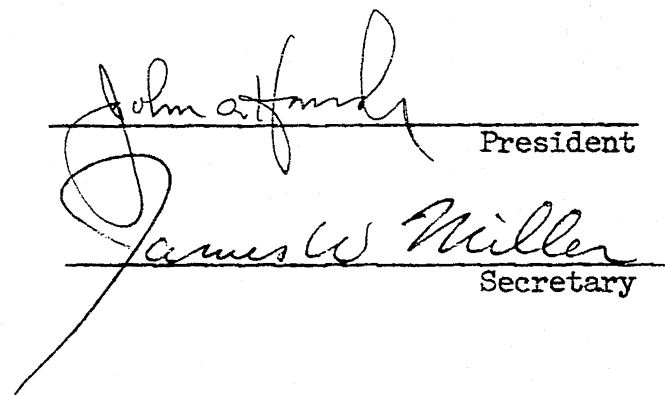 John A.
President
James W Miller
Secretary